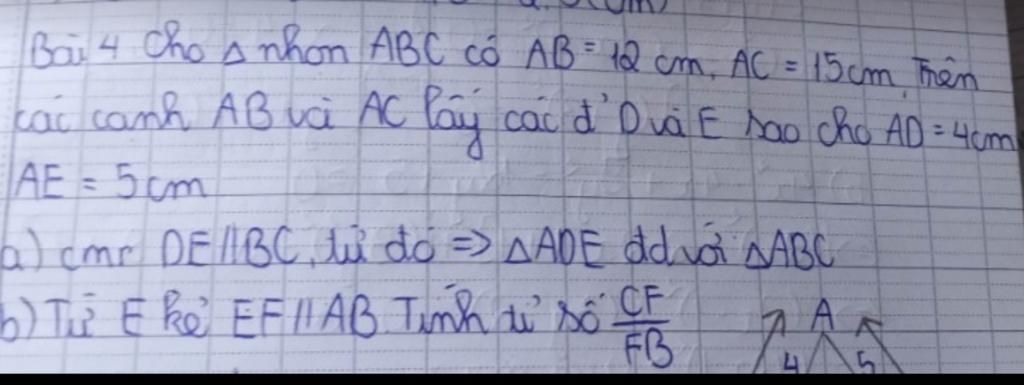 Bài 4 Cho Δ nhọn ABC có AB = 12 cm, AC = 15cm, Trên
các cạnh AB và AC lấy các đ' D và E sao cho AD = 4cm
AE = 5cm
a) cmr DE//BC, từ đó => ΔADE đd với ΔABC
b) Từ E kẻ EF//AB Tính tỉ số CF/FB
A
4 5